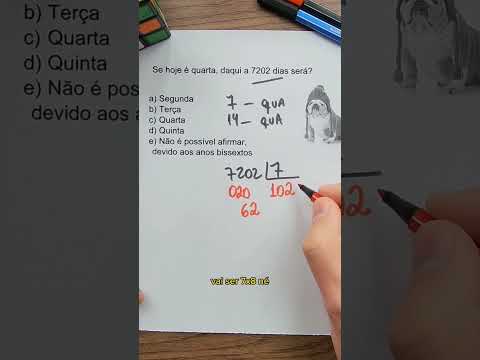 b) Terça
c) Quarta
d) Quinta
e) Não é po
devido aos a
Se hoje é quarta, daqui a 7202 dias será?
a) Segunda
b) Terça
c) Quarta
d) Quinta
e) Não é possível afirmar,
devido aos anos bissextos
7 - QUA
14 - QUA
7202 7
020 102
62
2
vai ser 7x8 né